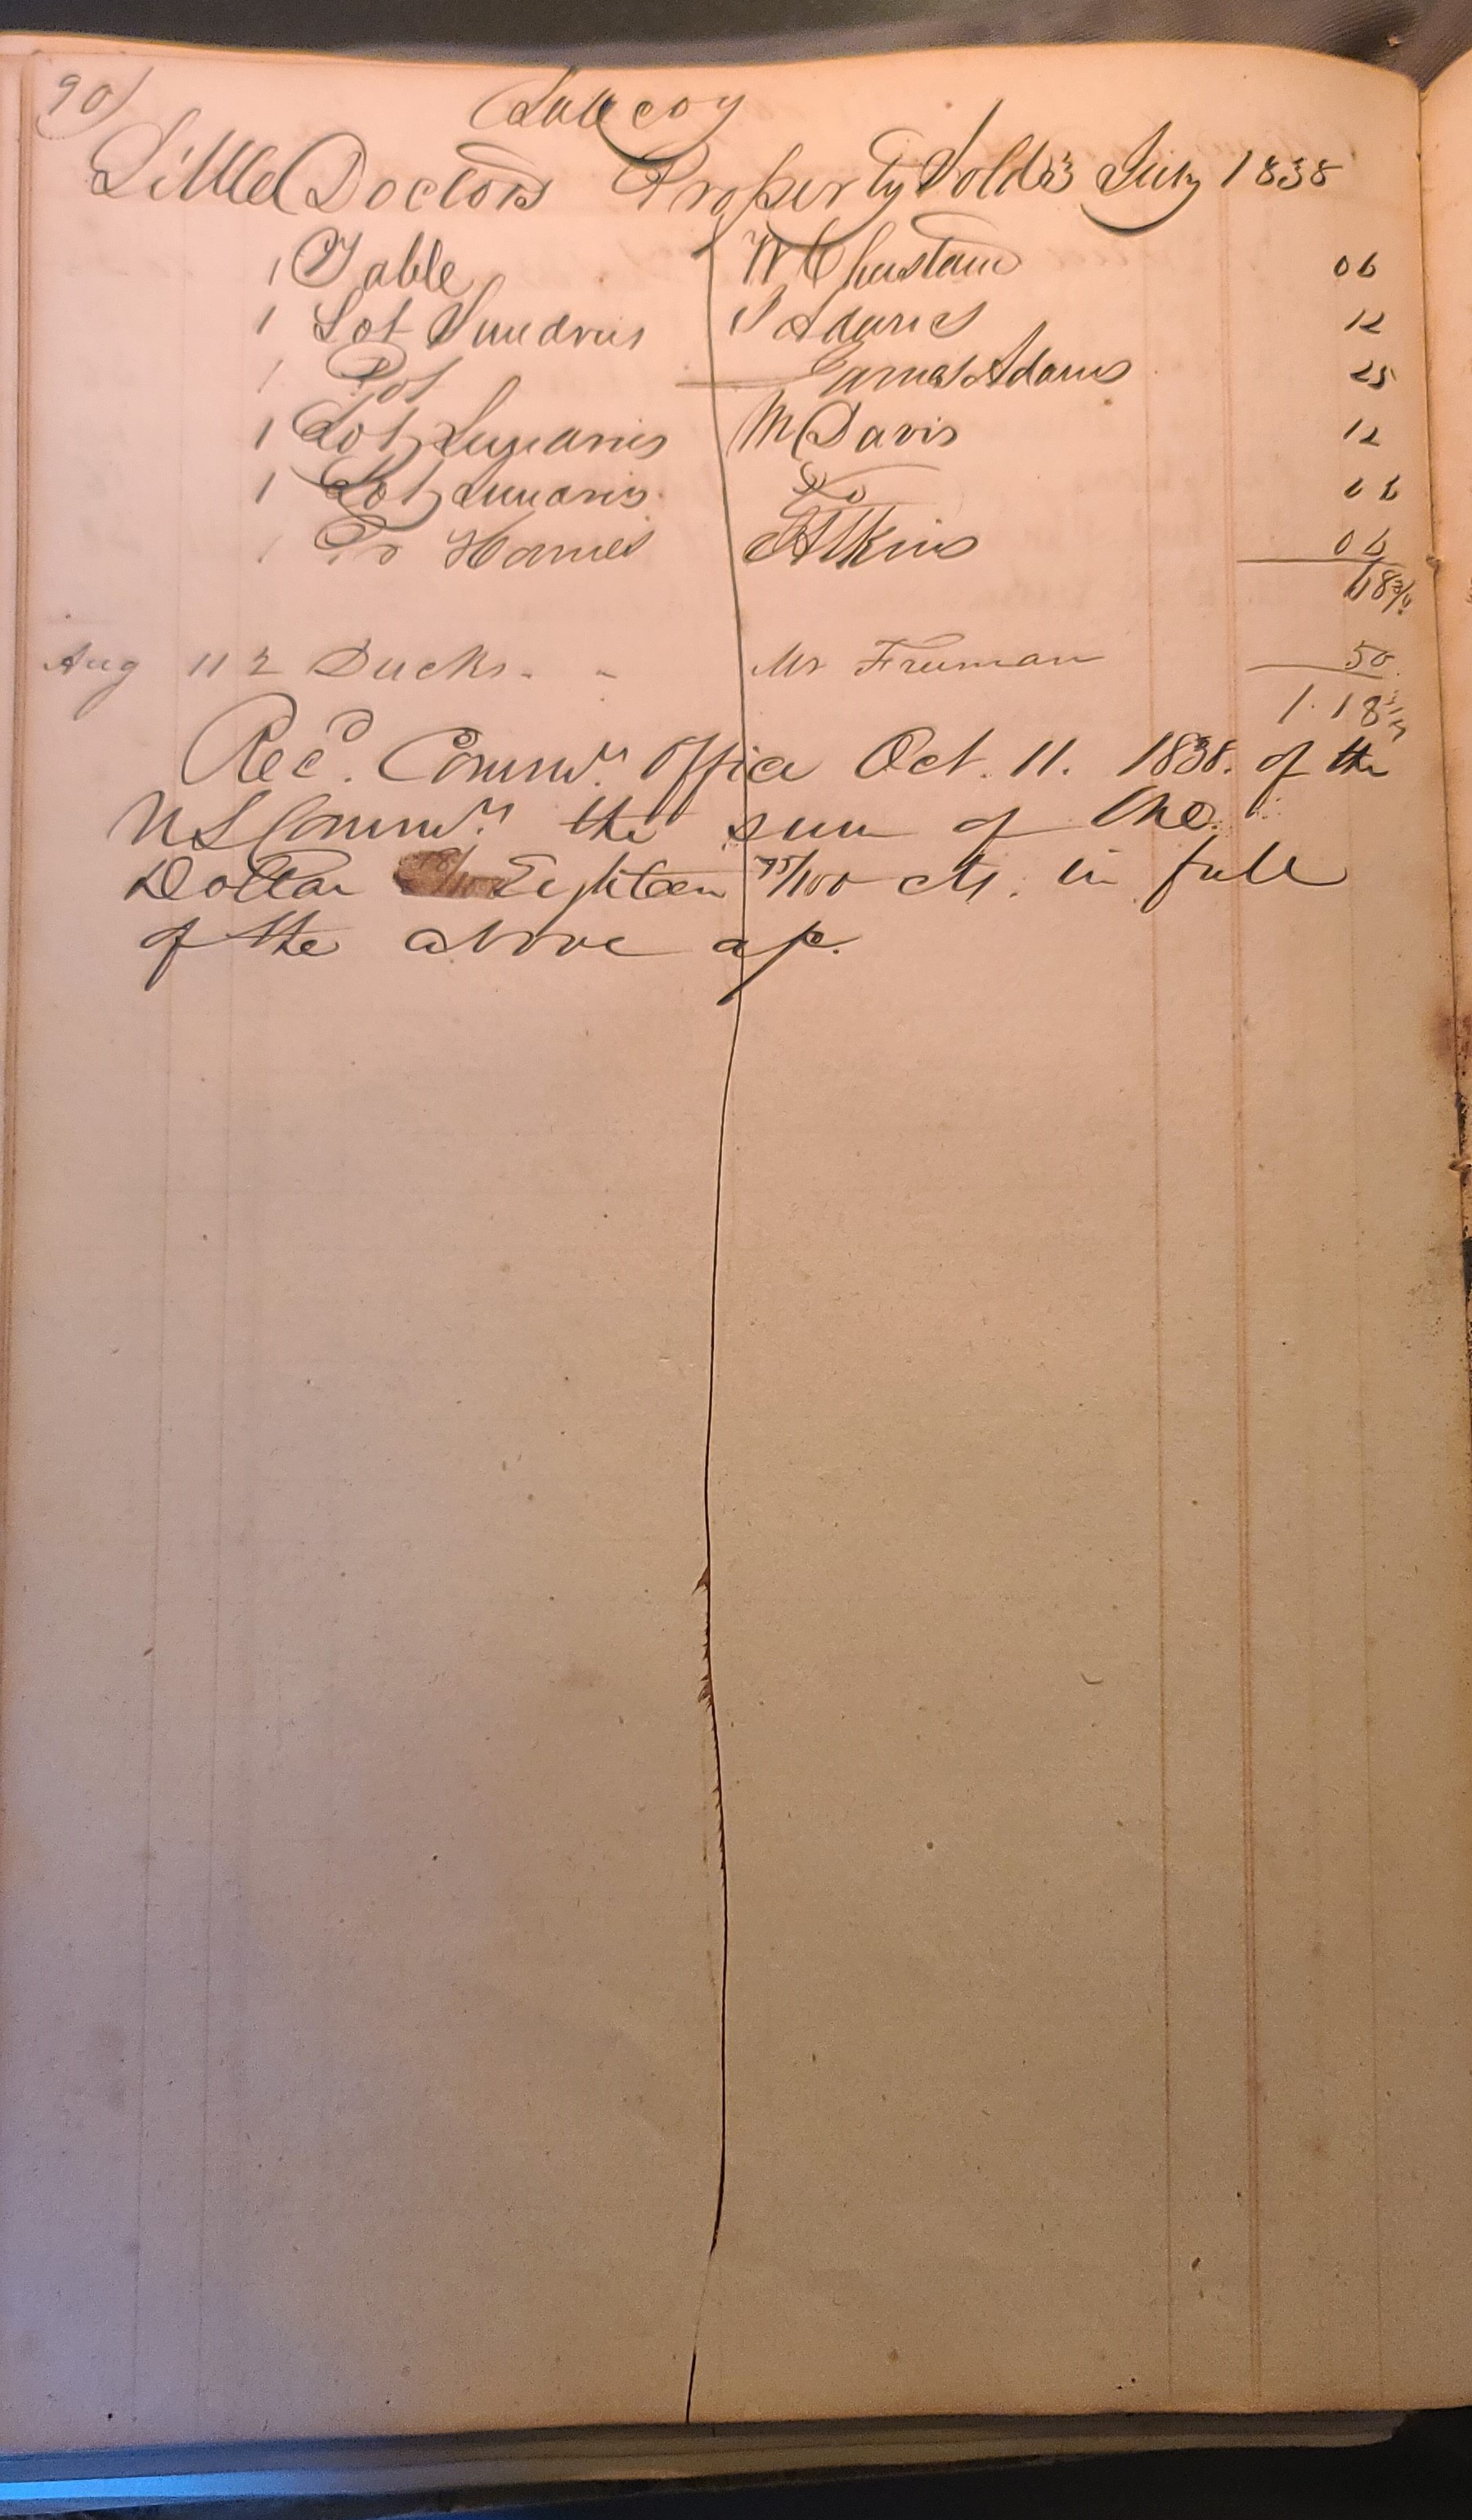 90)
Little Doctors Property Sold 3 July 1838
1 Table W Chastain 06
1 Lot Sundries J Adams 12
1 Pot James Adams 25
1 Lot Sundries M Davis 12
1 Lot Sundries Do 06
1 Pr Hames Atkins 06
68 3/4
Aug 11 2 Ducks. " Mr Freeman 50
1.18 3/4
Recd. Commrs. Office Oct. 11. 1838. of the
U S Commrs. the sum of One
Dollar Eighteen 75/100 cts. in full
of the above a/c.